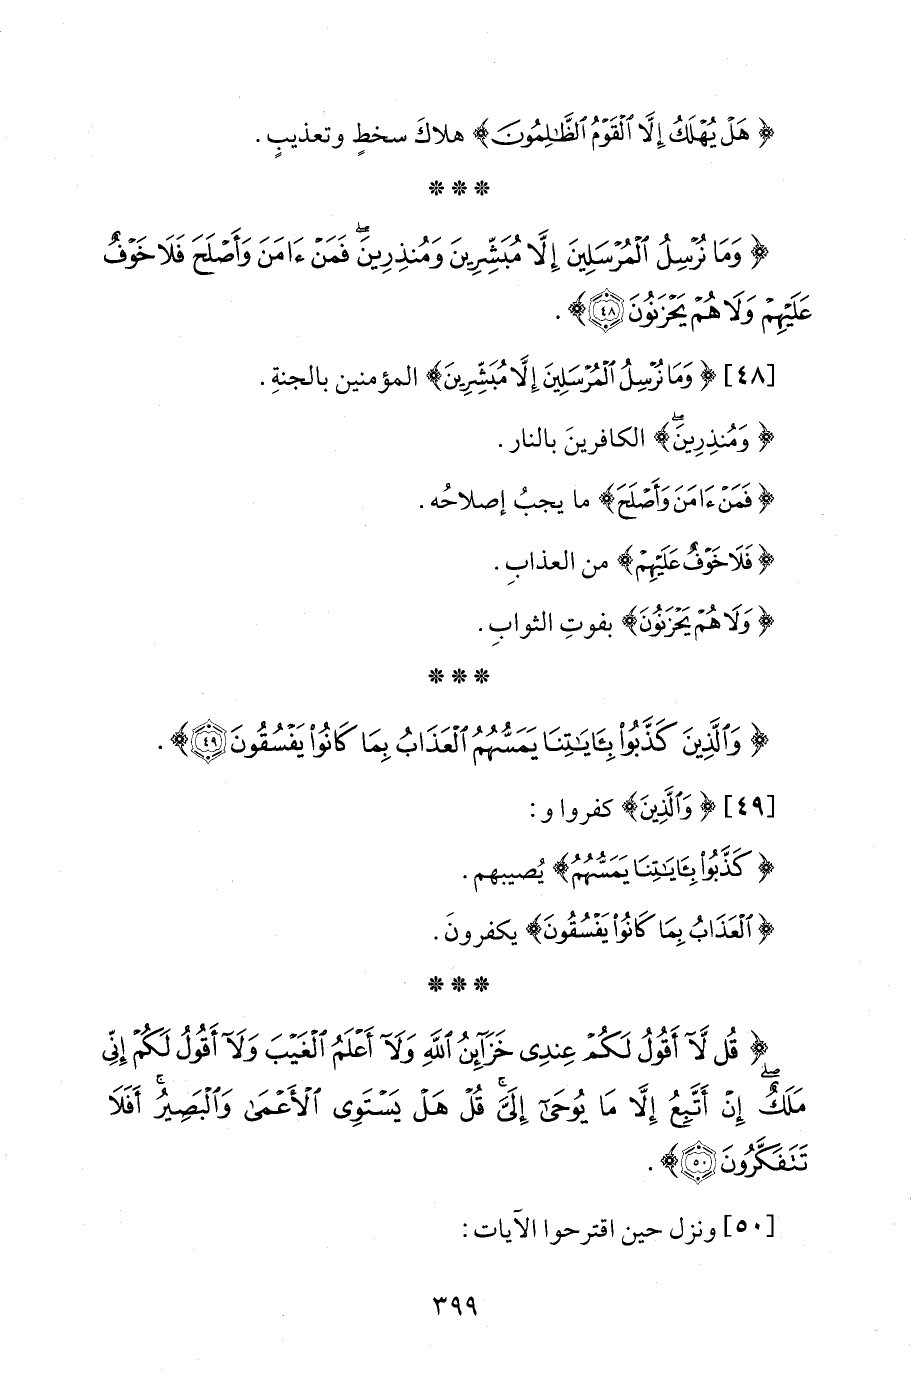 ﴿ هَلْ يُهْلَكُ إِلَّا ٱلْقَوْمُ ٱلظَّـٰلِمُونَ﴾ هلاكَ سخطٍ وتعذيبٍ.
* * *
﴿ وَمَا نُرْسِلُ ٱلْمُرْسَلِينَ إِلَّا مُبَشِّرِينَ وَمُنذِرِينَ ۖ فَمَنْ ءَامَنَ وَأَصْلَحَ فَلَا خَوْفٌ
عَلَيْهِمْ وَلَا هُمْ يَحْزَنُونَ ٤٨ ﴾ .
[٤٨] ﴿ وَمَا نُرْسِلُ ٱلْمُرْسَلِينَ إِلَّا مُبَشِّرِينَ﴾ المؤمنين بالجنةِ.
﴿ وَمُنذِرِينَ ۖ ﴾ الكافرينَ بالنار.
﴿ فَمَنْ ءَامَنَ وَأَصْلَحَ﴾ ما يجبُ إصلاحُه.
﴿ فَلَا خَوْفٌ عَلَيْهِمْ﴾ من العذابِ.
﴿ وَلَا هُمْ يَحْزَنُونَ﴾ بفوتِ الثوابِ.
* * *
﴿ وَٱلَّذِينَ كَذَّبُوا۟ بِـَٔايَـٰتِنَا يَمَسُّهُمُ ٱلْعَذَابُ بِمَا كَانُوا۟ يَفْسُقُونَ ٤٩ ﴾ .
[٤٩] ﴿ وَٱلَّذِينَ﴾ كفروا و:
﴿ كَذَّبُوا۟ بِـَٔايَـٰتِنَا يَمَسُّهُمُ﴾ يُصيبهم.
﴿ ٱلْعَذَابُ بِمَا كَانُوا۟ يَفْسُقُونَ﴾ يكفرونَ.
* * *
﴿ قُل لَّآ أَقُولُ لَكُمْ عِندِى خَزَآئِنُ ٱللَّهِ وَلَآ أَعْلَمُ ٱلْغَيْبَ وَلَآ أَقُولُ لَكُمْ إِنِّى
مَلَكٌ ۖ إِنْ أَتَّبِعُ إِلَّا مَا يُوحَىٰٓ إِلَىَّ ۚ قُلْ هَلْ يَسْتَوِى ٱلْأَعْمَىٰ وَٱلْبَصِيرُ ۚ أَفَلَا
تَتَفَكَّرُونَ ٥٠ ﴾ .
[٥٠] ونزل حين اقترحوا الآيات:
٣٩٩